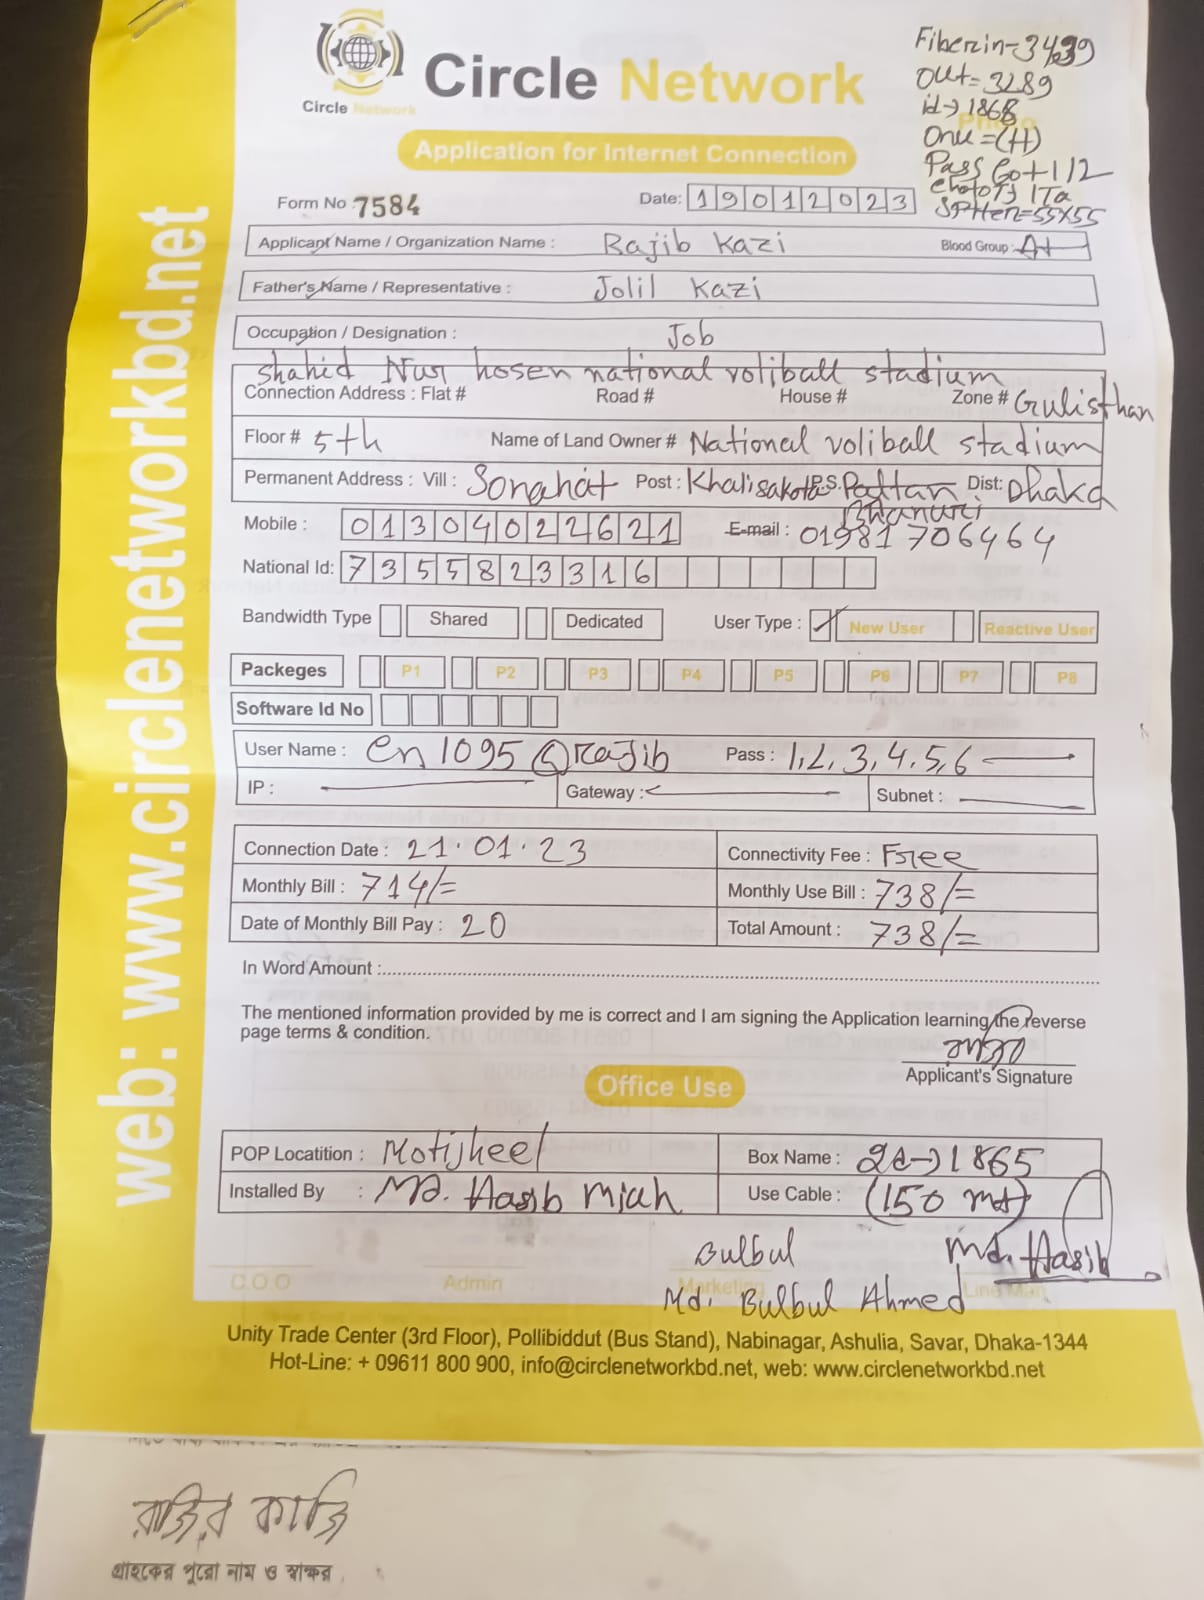 Circle Network
Circle Network
Fiberin=3439
Out=3289
id→1868
Onu=(H)
Application for Internet Connection
Form No :7584
Date: 19012023
Applicant Name / Organization Name : Rajib Kazi Blood Group: A+
Father's Name / Representative : Jolil Kazi
Occupation / Designation : Job
Shahid Nur hosen national voliball stadium
Connection Address : Flat # Road # House # Zone # Gulisthan
Floor # 5th Name of Land Owner # National voliball stadium
Permanent Address : Vill : Sonahat Post : Khalisakota P.S. Paltan Dist: Dhaka
Mobile : 01304022621 E-mail : 01981706464
National Id: 7355823316
Bandwidth Type Shared Dedicated User Type : ✓ New User Reactive User
Packeges P1 P2 P3 P4 P5 P6 P7 P8
Software Id No
User Name : Cn1095@Rajib Pass : 1,2,3,4,5,6
IP : Gateway : Subnet :
Connection Date : 21.01.23 Connectivity Fee : Free
Monthly Bill : 714/= Monthly Use Bill : 738/=
Date of Monthly Bill Pay : 20 Total Amount : 738/=
In Word Amount :
The mentioned information provided by me is correct and I am signing the Application learning the reverse
page terms & condition.
Applicant's Signature
Office Use
POP Locatition : Motijheel Box Name : →1865
Installed By : Md. Hasib Miah Use Cable : (150 mt)
Bulbul Md. Hasib
C.O.O Admin Marketing Line Man
Md. Bulbul Ahmed
Unity Trade Center (3rd Floor), Pollibiddut (Bus Stand), Nabinagar, Ashulia, Savar, Dhaka-1344
Hot-Line: + 09611 800 900, info@circlenetworkbd.net, web: www.circlenetworkbd.net
web: www.circlenetworkbd.net
রাজিব কাজি
গ্রাহকের পুরো নাম ও স্বাক্ষর